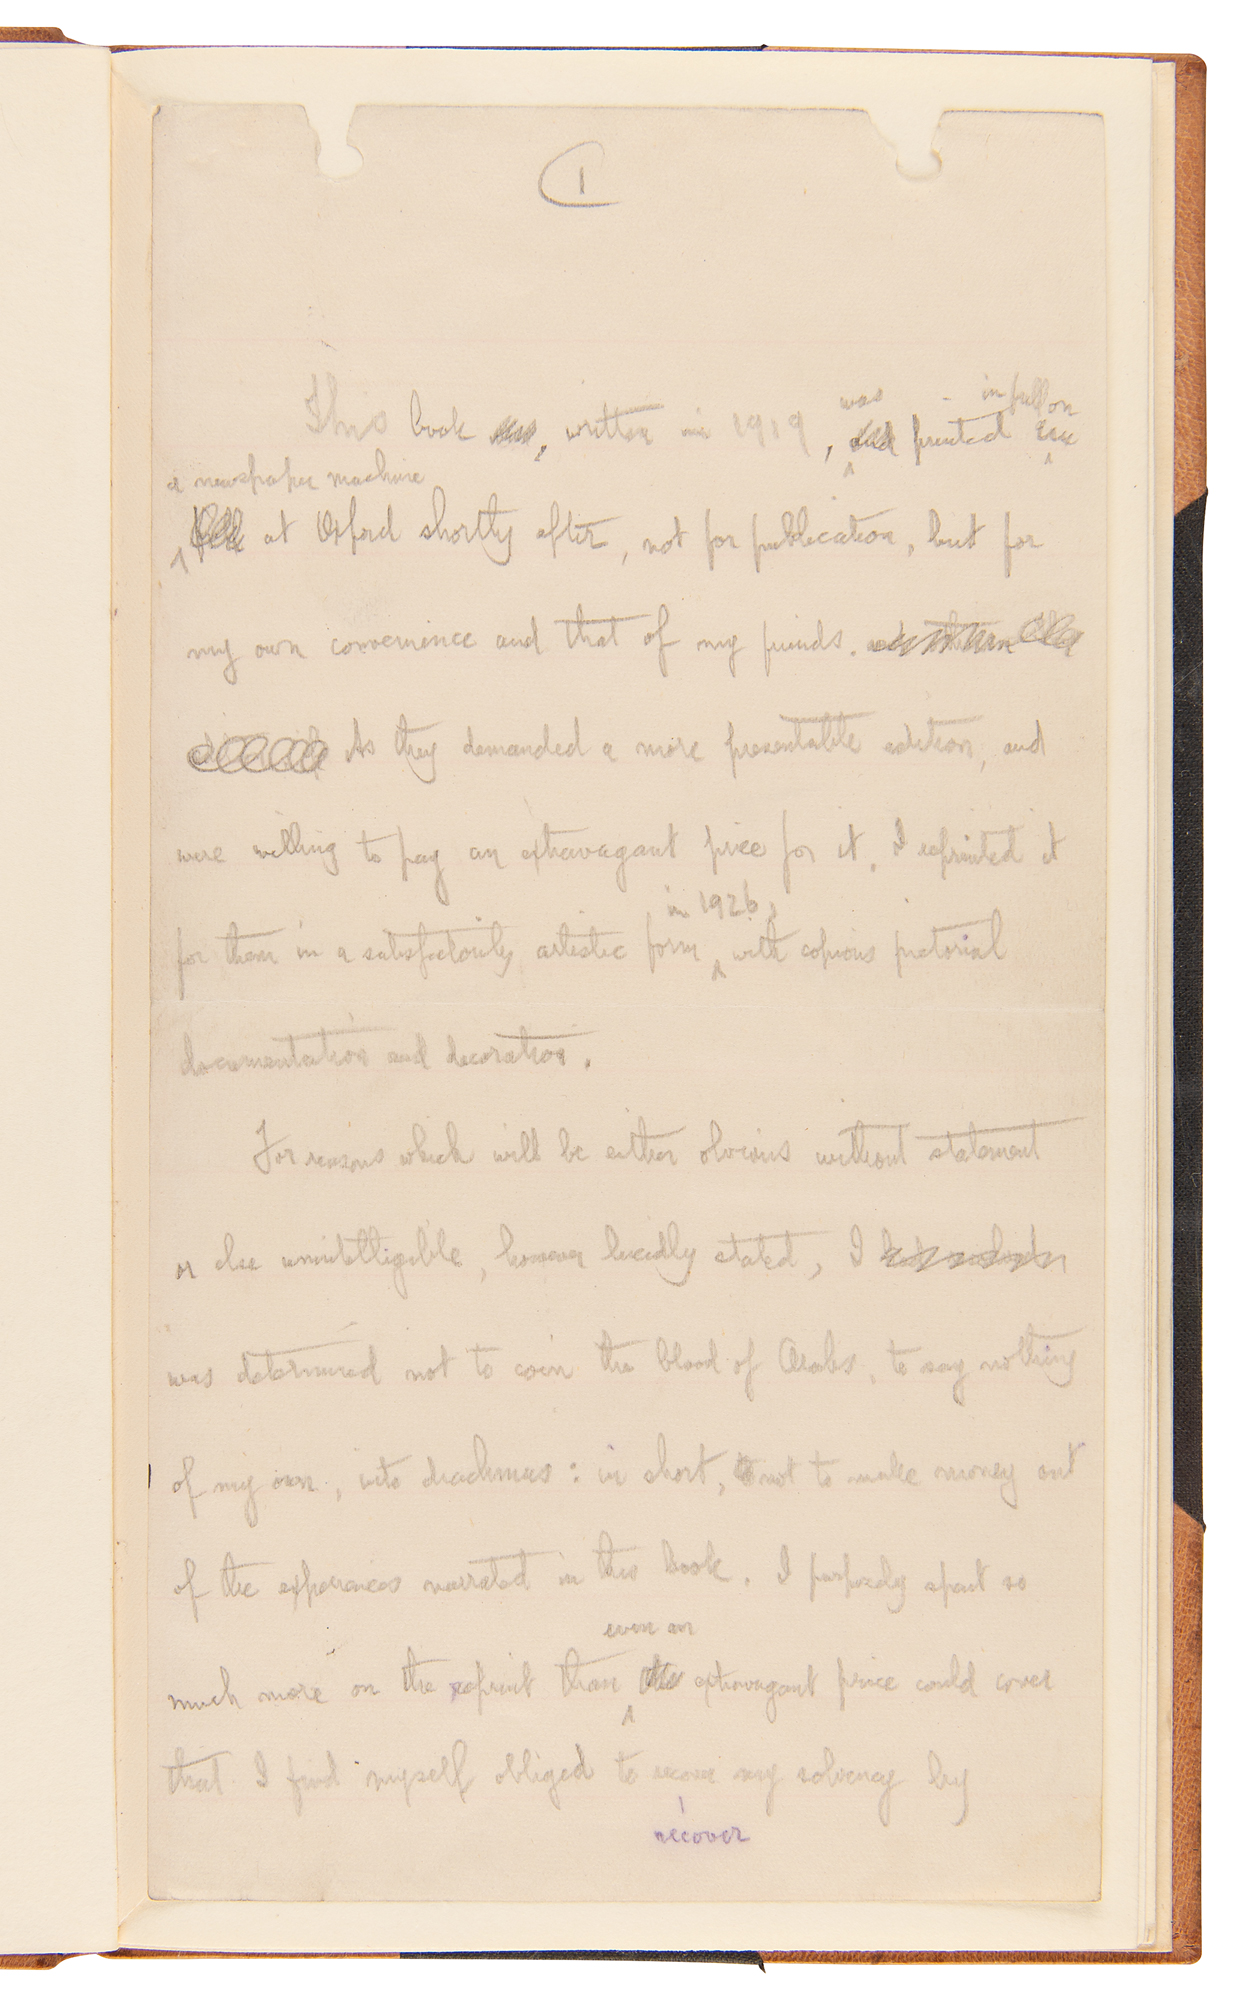 1
This book , written in 1919, was printed in full on
a newspaper machine
at Oxford shortly after, not for publication, but for
my own convenience and that of my friends.
As they demanded a more presentable edition, and
were willing to pay an extravagant price for it, I reprinted it
for them in a satisfactorily artistic form in 1926, with copious pictorial
documentation and decoration.
For reasons which will be either obvious without statement
or else unintelligible, however lucidly stated, I
was determined not to coin the blood of Arabs, to say nothing
of my own, into drachmas: in short, not to make money out
of the experiences narrated in this book. I purposely spent so
much more on the reprint than even an extravagant price could cover
that I find myself obliged to recover my solvency by
recover